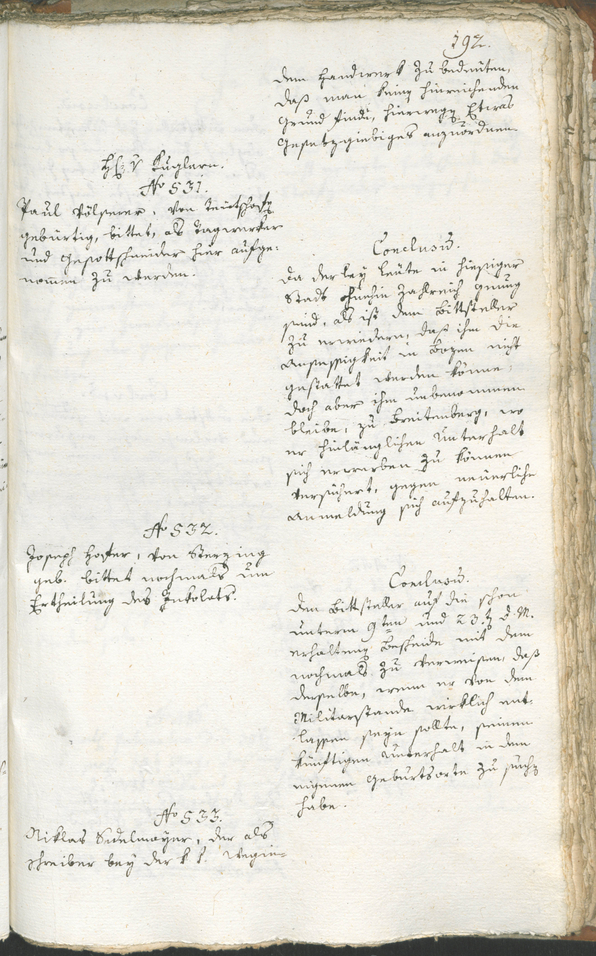 192.
dem Handwerk zu bedeuten,
daß man keine hinreichenden
Grund finde, hierwegen Etwas
Gesetzgiebiges anzuordnen.
Kuglern.
No 531.
Paul Völsener, von
gebürtig, bittet, als Tagwerker
und Gesottschneider hier aufge-
nommen zu werden.
Conclusum.
Da derley Leute in hiesiger
Stadt ohnehin zahlreich genug
sind, als ist dem Bittsteller
zu erwiedern, daß ihm die
Ansessigkeit in Bozen nicht
gestattet werden könne,
doch aber ihm unbenommen
bleibe, zu Breitenberg, wo
er hinlänglichen Unterhalt
sich erwerben zu können
versichert, gegen neuerliche
Anmeldung sich aufzuhalten.
No 532.
Joseph Hofer, von Sterzing
geb. bittet nochmals um
Ertheilung des Inkolats.
Conclusum.
Den Bittsteller auf die schon
unterm 9ten und 23. d. M.
erhaltene Bescheide mit dem
nochmals zu verweisen, daß
derselbe, wenn er von dem
Militarstande wirklich ent-
lassen seyn sollte, seinen
künftigen Unterhalt in dem
eigenen Geburtsorte zu suchen
habe.
No 533.
Niklas Sidelmayer, der als
Schreiber bey der k. k. Wegin-